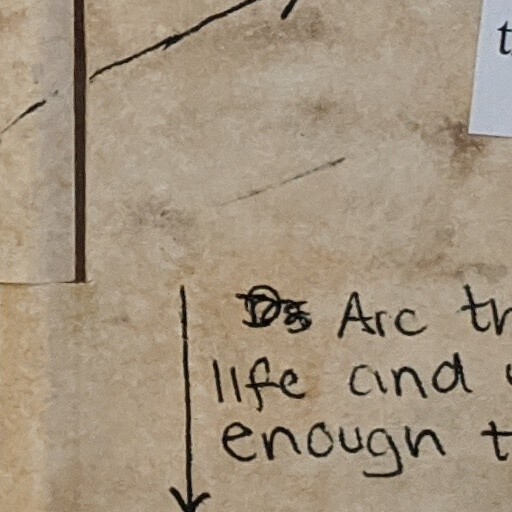 t
Arc th
life and
enough t